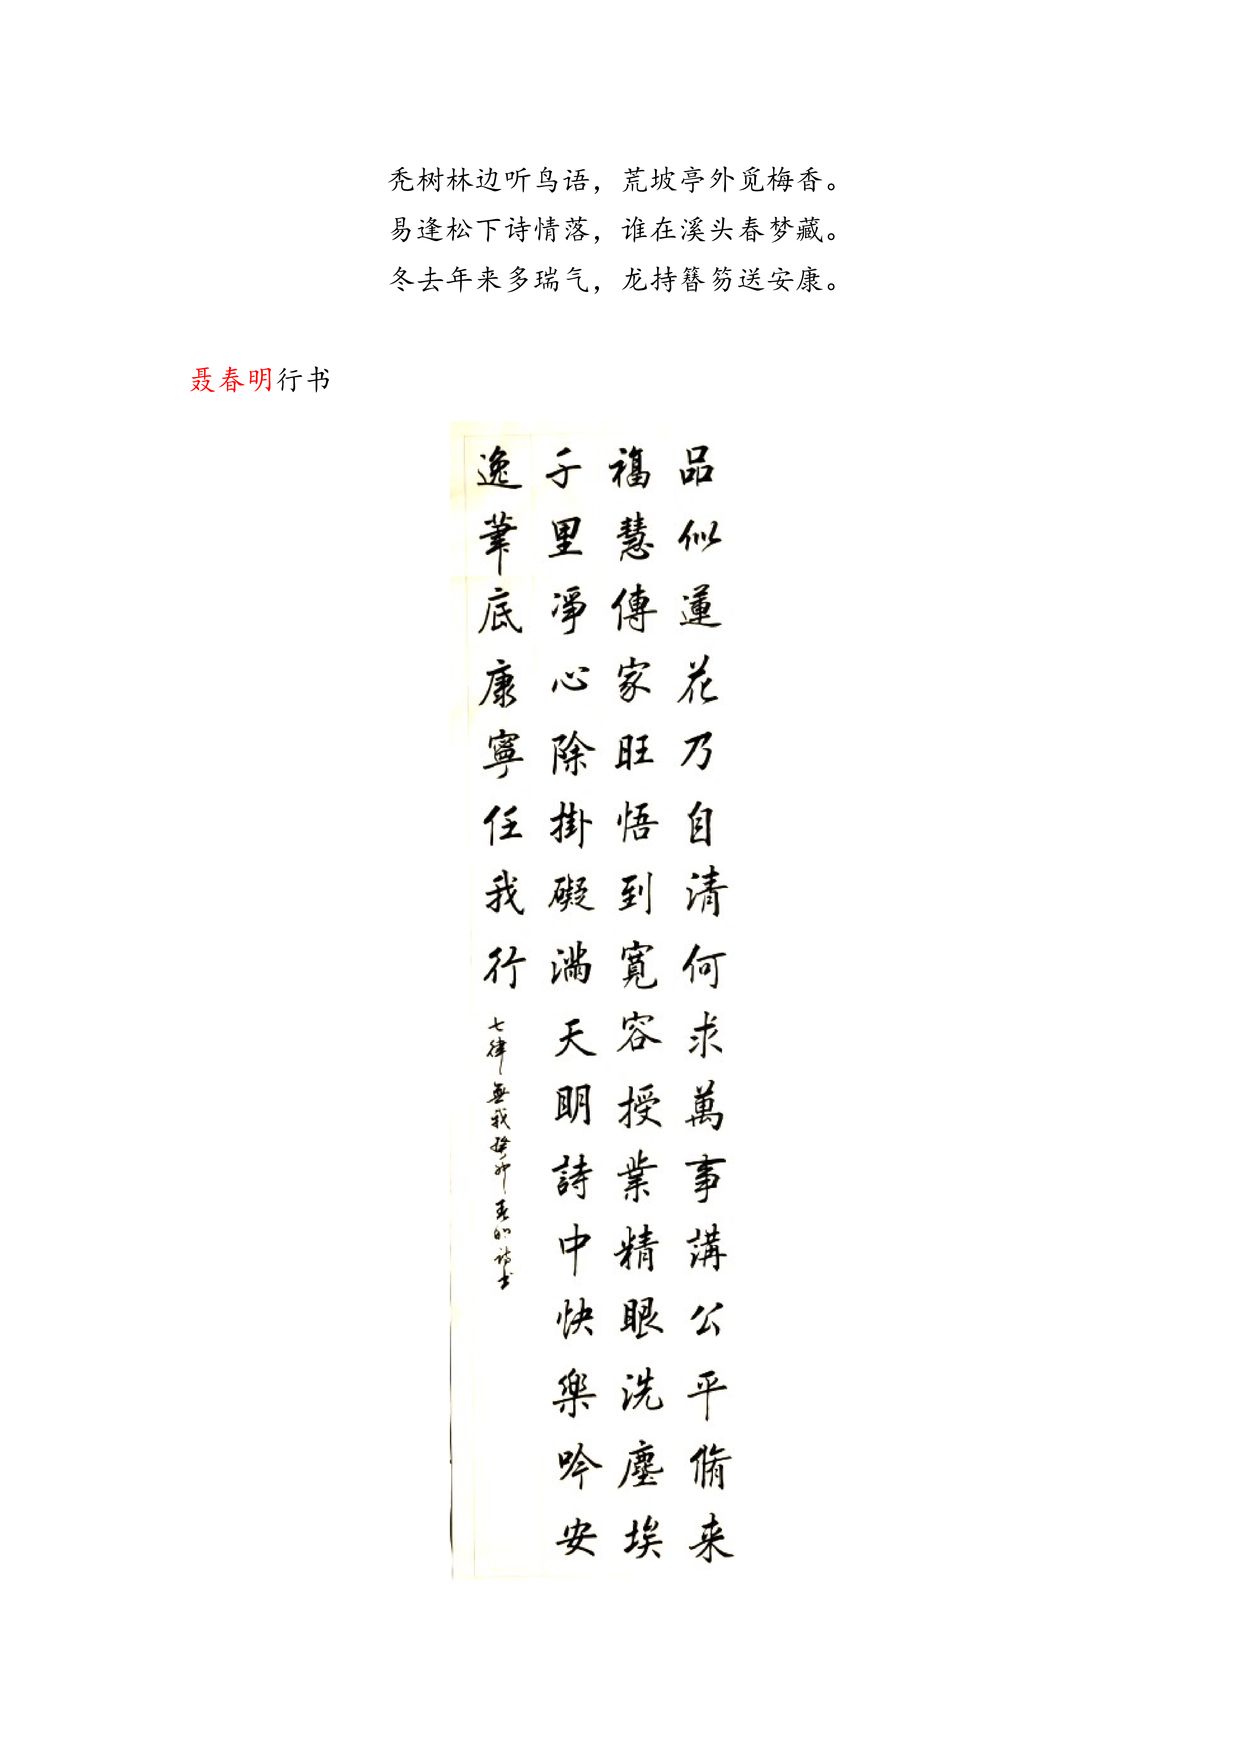 秃树林边听鸟语，荒坡亭外觅梅香。
易逢松下诗情落，谁在溪头春梦藏。
冬去年来多瑞气，龙持簪笏送安康。
聂春明行书
品似蓮花乃自清何求萬事講公平脩来
福慧傳家旺悟到寬容授業精眼洗塵埃
千里淨心除掛礙滿天明詩中快樂吟安
逸筆底康寧任我行
七律無我癸卯春明詩書